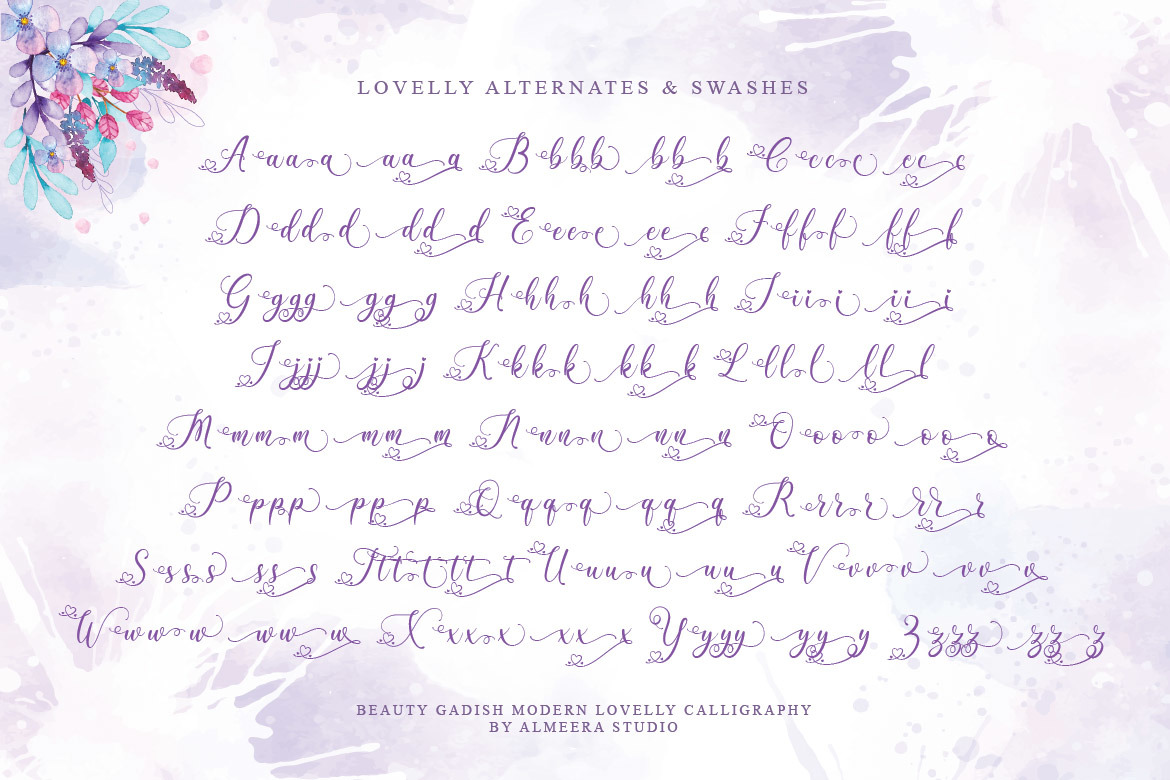 LOVELLY ALTERNATES & SWASHES
Aaaaa aa a Bbbb bb b Ccccc cc c
Dddd dd d Eeeee ee e Fffff ff f
Gggg gg g Hhhh hh h Iiiii ii i
Jjjj jj j Kkkk kk k Lllll ll l
Mmmm mm m Nnnn nn n Ooooo oo o
Pppp pp p Qqqq qq q Rrrrr rr r
Sssss ss s Ttttt tt t Uuuu uu u Vvvvv vv v
Wwwww ww w Xxxxx xx x Yyyy yy y Zzzz zz z
BEAUTY GADISH MODERN LOVELLY CALLIGRAPHY
BY ALMEERA STUDIO